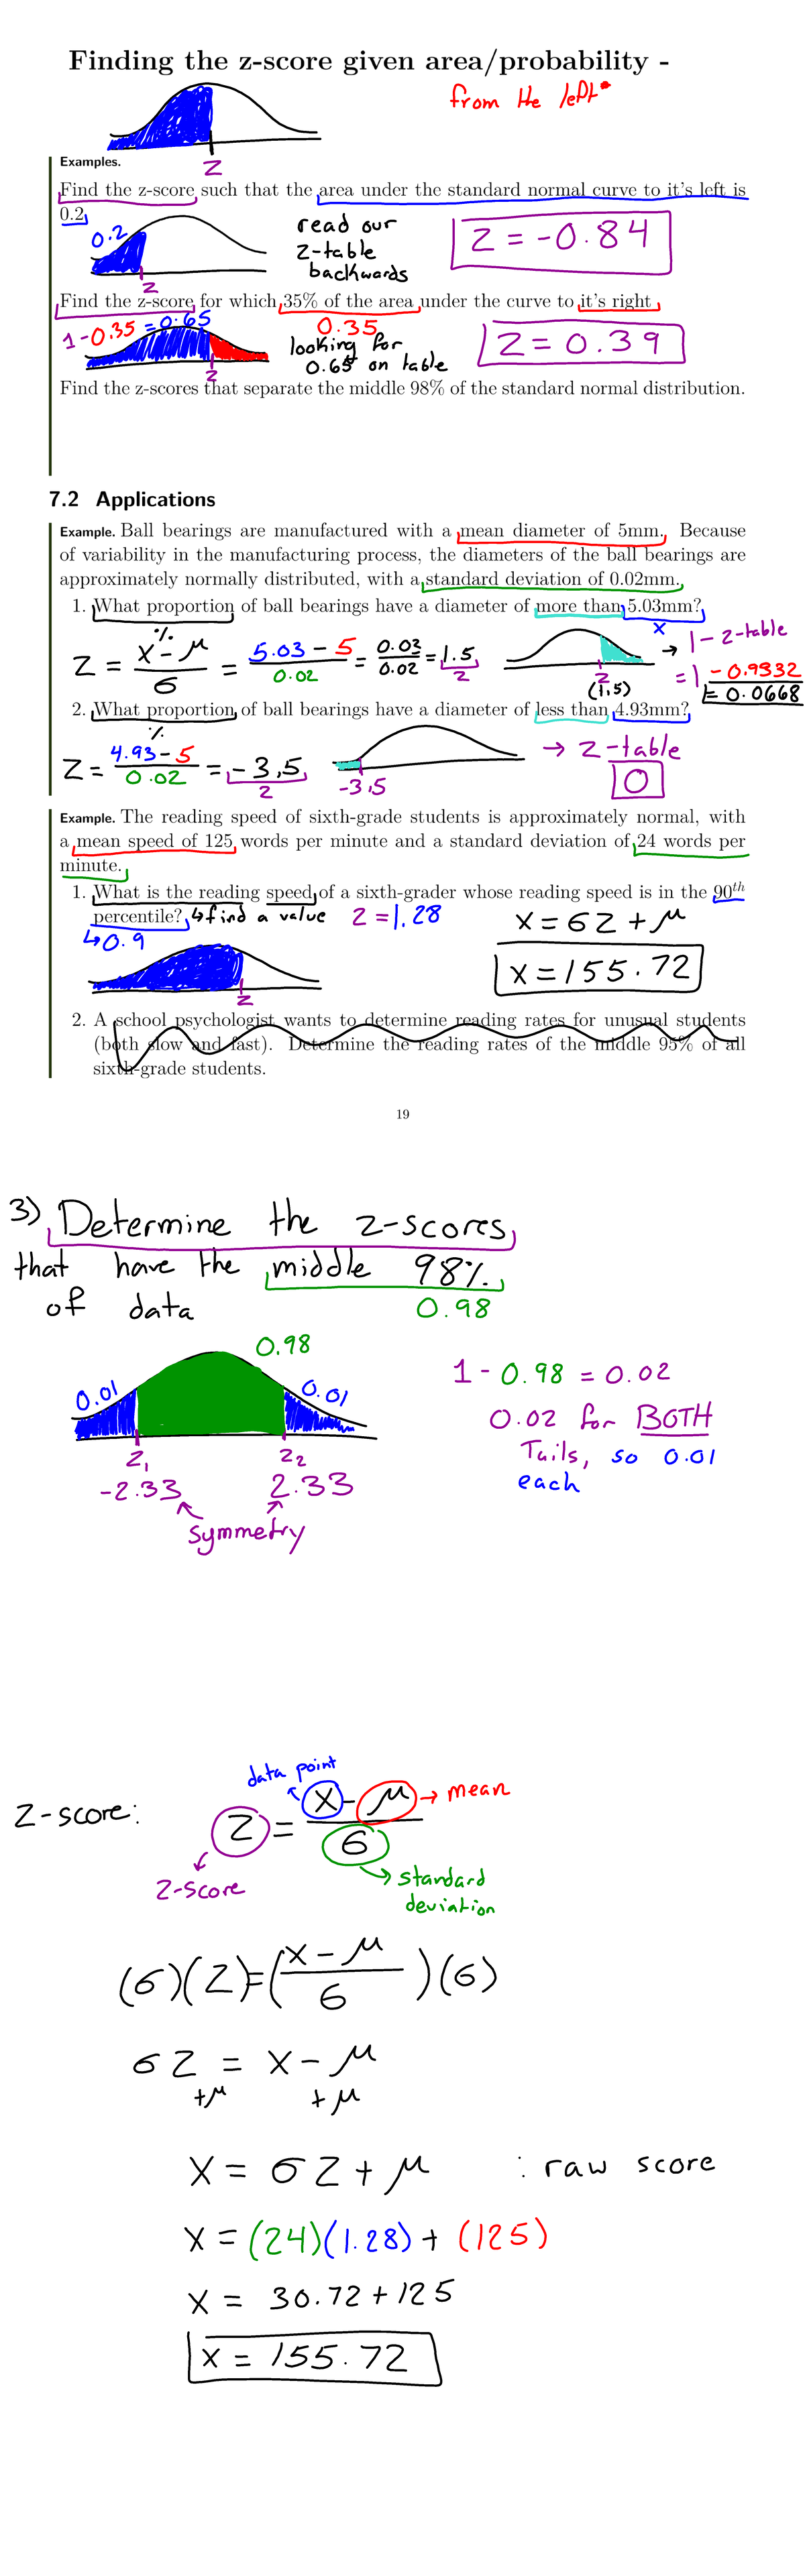 Finding the z-score given area/probability -
from the left
z
Examples.
Find the z-score such that the area under the standard normal curve to it's left is
0.2.
0.2
z
read our
z-table
backwards
z = -0.84
Find the z-score for which 35% of the area under the curve to it's right.
1-0.35 = 0.65
z
0.35
looking for
0.65 on table
z = 0.39
Find the z-scores that separate the middle 98% of the standard normal distribution.
7.2 Applications
Example. Ball bearings are manufactured with a mean diameter of 5mm. Because
of variability in the manufacturing process, the diameters of the ball bearings are
approximately normally distributed, with a standard deviation of 0.02mm.
1. What proportion of ball bearings have a diameter of more than 5.03mm?
% x
z = x - μ / σ = 5.03 - 5 / 0.02 = 0.03 / 0.02 = 1.5
z
z
(1.5)
→ 1 - z-table
= 1 - 0.9332
= 0.0668
2. What proportion of ball bearings have a diameter of less than 4.93mm?
%
z = 4.93 - 5 / 0.02 = -3.5
z
-3.5
→ z-table
0
Example. The reading speed of sixth-grade students is approximately normal, with
a mean speed of 125 words per minute and a standard deviation of 24 words per
minute.
1. What is the reading speed of a sixth-grader whose reading speed is in the 90th
percentile? ↳ find a value z = 1.28
↳ 0.9
z
x = σz + μ
x = 155.72
2. A school psychologist wants to determine reading rates for unusual students
(both slow and fast). Determine the reading rates of the middle 95% of all
sixth-grade students.
19
3) Determine the z-scores
that have the middle 98%
of data 0.98
0.01 0.98 0.01
z₁ z₂
-2.33 2.33
symmetry
1 - 0.98 = 0.02
0.02 for BOTH
Tails, so 0.01
each
z-score:
data point
z = x - μ / σ → mean
z-score
standard
deviation
(σ)(z) = (x - μ / σ)(σ)
σz = x - μ
+μ +μ
x = σz + μ : raw score
x = (24)(1.28) + (125)
x = 30.72 + 125
x = 155.72